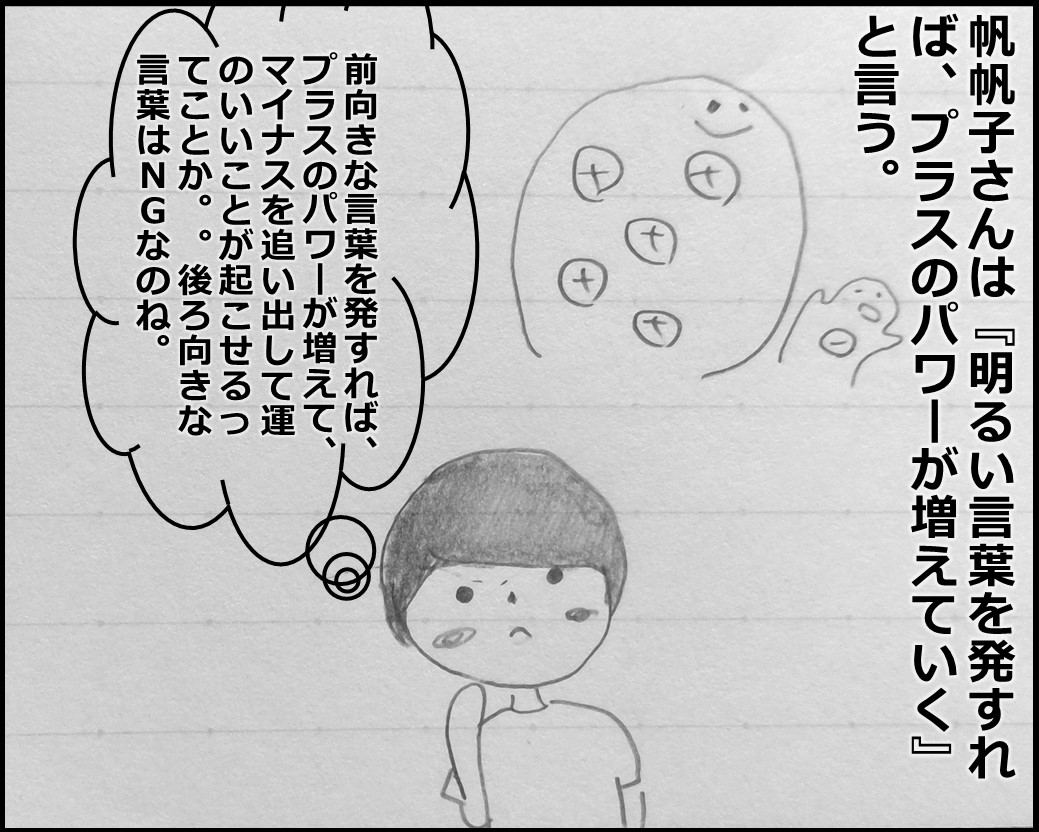 帆帆子さんは『明るい言葉を発すれ
ば、プラスのパワーが増えていく』
と言う。
前向きな言葉を発すれば、
プラスのパワーが増えて、
マイナスを追い出して運
のいいことが起こせるっ
てことか。。後ろ向きな
言葉はNGなのね。
+
+
+
+
+
−